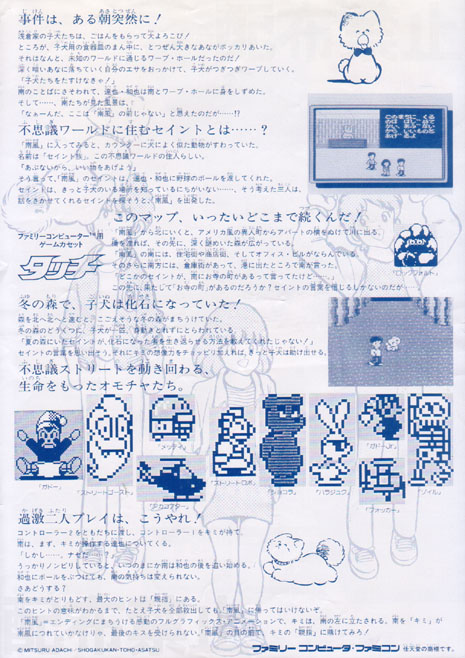 事件は、ある朝突然に!
浅倉家の子犬たちは、ごはんをもらって大よろこび!
ところが、子犬用の食器皿のまん中に、とつぜん大きなあながポッカリあいた。
それはなんと、未知のワールドに通じるワープ・ホールだったのだ!
深く暗いあなに落ちていく自分のエサをおっかけて、子犬がつぎつぎワープしていく。
「子犬たちをたすけなきゃ!」
南のことばにさそわれて、達也・和也は南とワープ・ホールに身をしずめた。
そして……、南たちが見た風景は、
「なぁーんだ、ここは『南風』の前じゃない」と思えたのだが……!?
不思議ワールドに住むセイントとは……?
「南風」に入ってみると、カウンターに犬によく似た動物がすわっていた。
名前は「セイント族」。この不思議ワールドの住人らしい。
「あぶないから、いい物をあげよう」
そう言って、「南風」のセイントは、達也・和也に野球のボールを渡してくれた。
セイントは、きっと子犬のいる場所を知っているにちがいない……、そう考えた三人は、
話をきかせてくれるセイントを探そうと、「南風」を出発した。
このマップ、いったいどこまで続くんだ!
ファミリーコンピューター™用
ゲームカセット
タッチ
「南風」から北にいくと、アメリカ風の異人町からアパートの横をぬけて川に出る。
橋を渡れば、その先に、深く謎めいた森が広がっている。
「南風」の南には、住宅街や商店街、そしてオフィス・ビルがならんでいる。
そのさらに南方には、倉庫街があって、港に出たところで南が言った。
「どこかのセイントが、南にお寺の町があるって言ってたけど……。」
この先に果たして「お寺の町」があるのだろうか?セイントの言葉を信じるしかないのだが
冬の森で、子犬は化石になっていた!
森を北へ北へと進むと、こごえそうな冬の森がまちうけていた。
冬の森のどうくつに、子犬が一匹、身動きとれずにとらわれている。
「夏の森にいたセイントが、化石になった者を生き返らせる方法を教えてくれたじゃない!」
セイントの言葉を思い出そう。それにキミの想像力をチョッピリ加えれば、きっと子犬は助け出せる。
不思議ストリートを動き回わる、
生命をもったオモチャたち。
「ガドー」
「ストリートゴースト」
「ストリートロボ」
「ショコラ」
「ハラジュク」
「ガドーJr.」
「フォッカー」
過激二人プレイは、こうやれ!
コントローラーⅡをともだちに渡し、コントローラーⅠをキミが持て。
南は、まず、キミが操作する達也についてくる。
「しかし……、ナゼだ……?」
うっかりノンビリしていると、いつのまにか南は和也の後を追い始める。
和也にボールをぶつけても、南の気持ちは変えられない。
さあどうする?
南をキミがとりもどす、最大のヒントは「親指」にある。
このヒントの意味がわかるまで、たとえ子犬を全部救出しても、「南風」に帰ってはいけないぞ。
「南風=エンディングにまちうける感動のフルグラフィックス・アニメーションで、キミは、南の左に立たされる。南を「キミ」が
南風につれていかなけりゃ、最後のキスを受けられない。「南風」の目の前で、キミの「親指」に賭けてみろ!
© MITSURU ADACHI/SHOGAKUKAN・TOHO・ASATSU
ファミリーコンピュータ・ファミコン 任天堂の商標です。